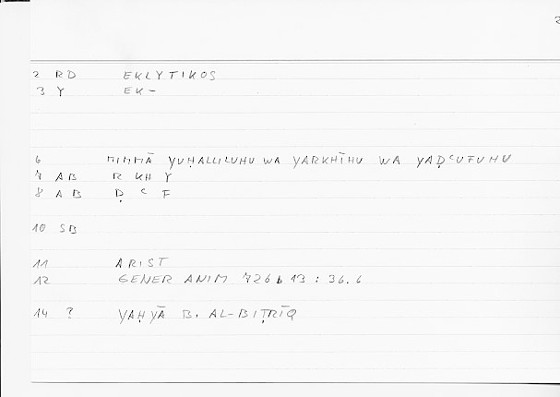 2
2 RD EKLYTIKOS
3 Y EK-
6 MIMMĀ YUḤALLILUHU WA YARKHĪHU WA YAḌʿUFUHU
7 AB R KH Y
8 AB Ḍ ʿ F
10 SB
11 ARIST
12 GENER ANIM 726 b 13 : 36.6
14 ? YAḤYĀ B. AL-BIṬRĪQ